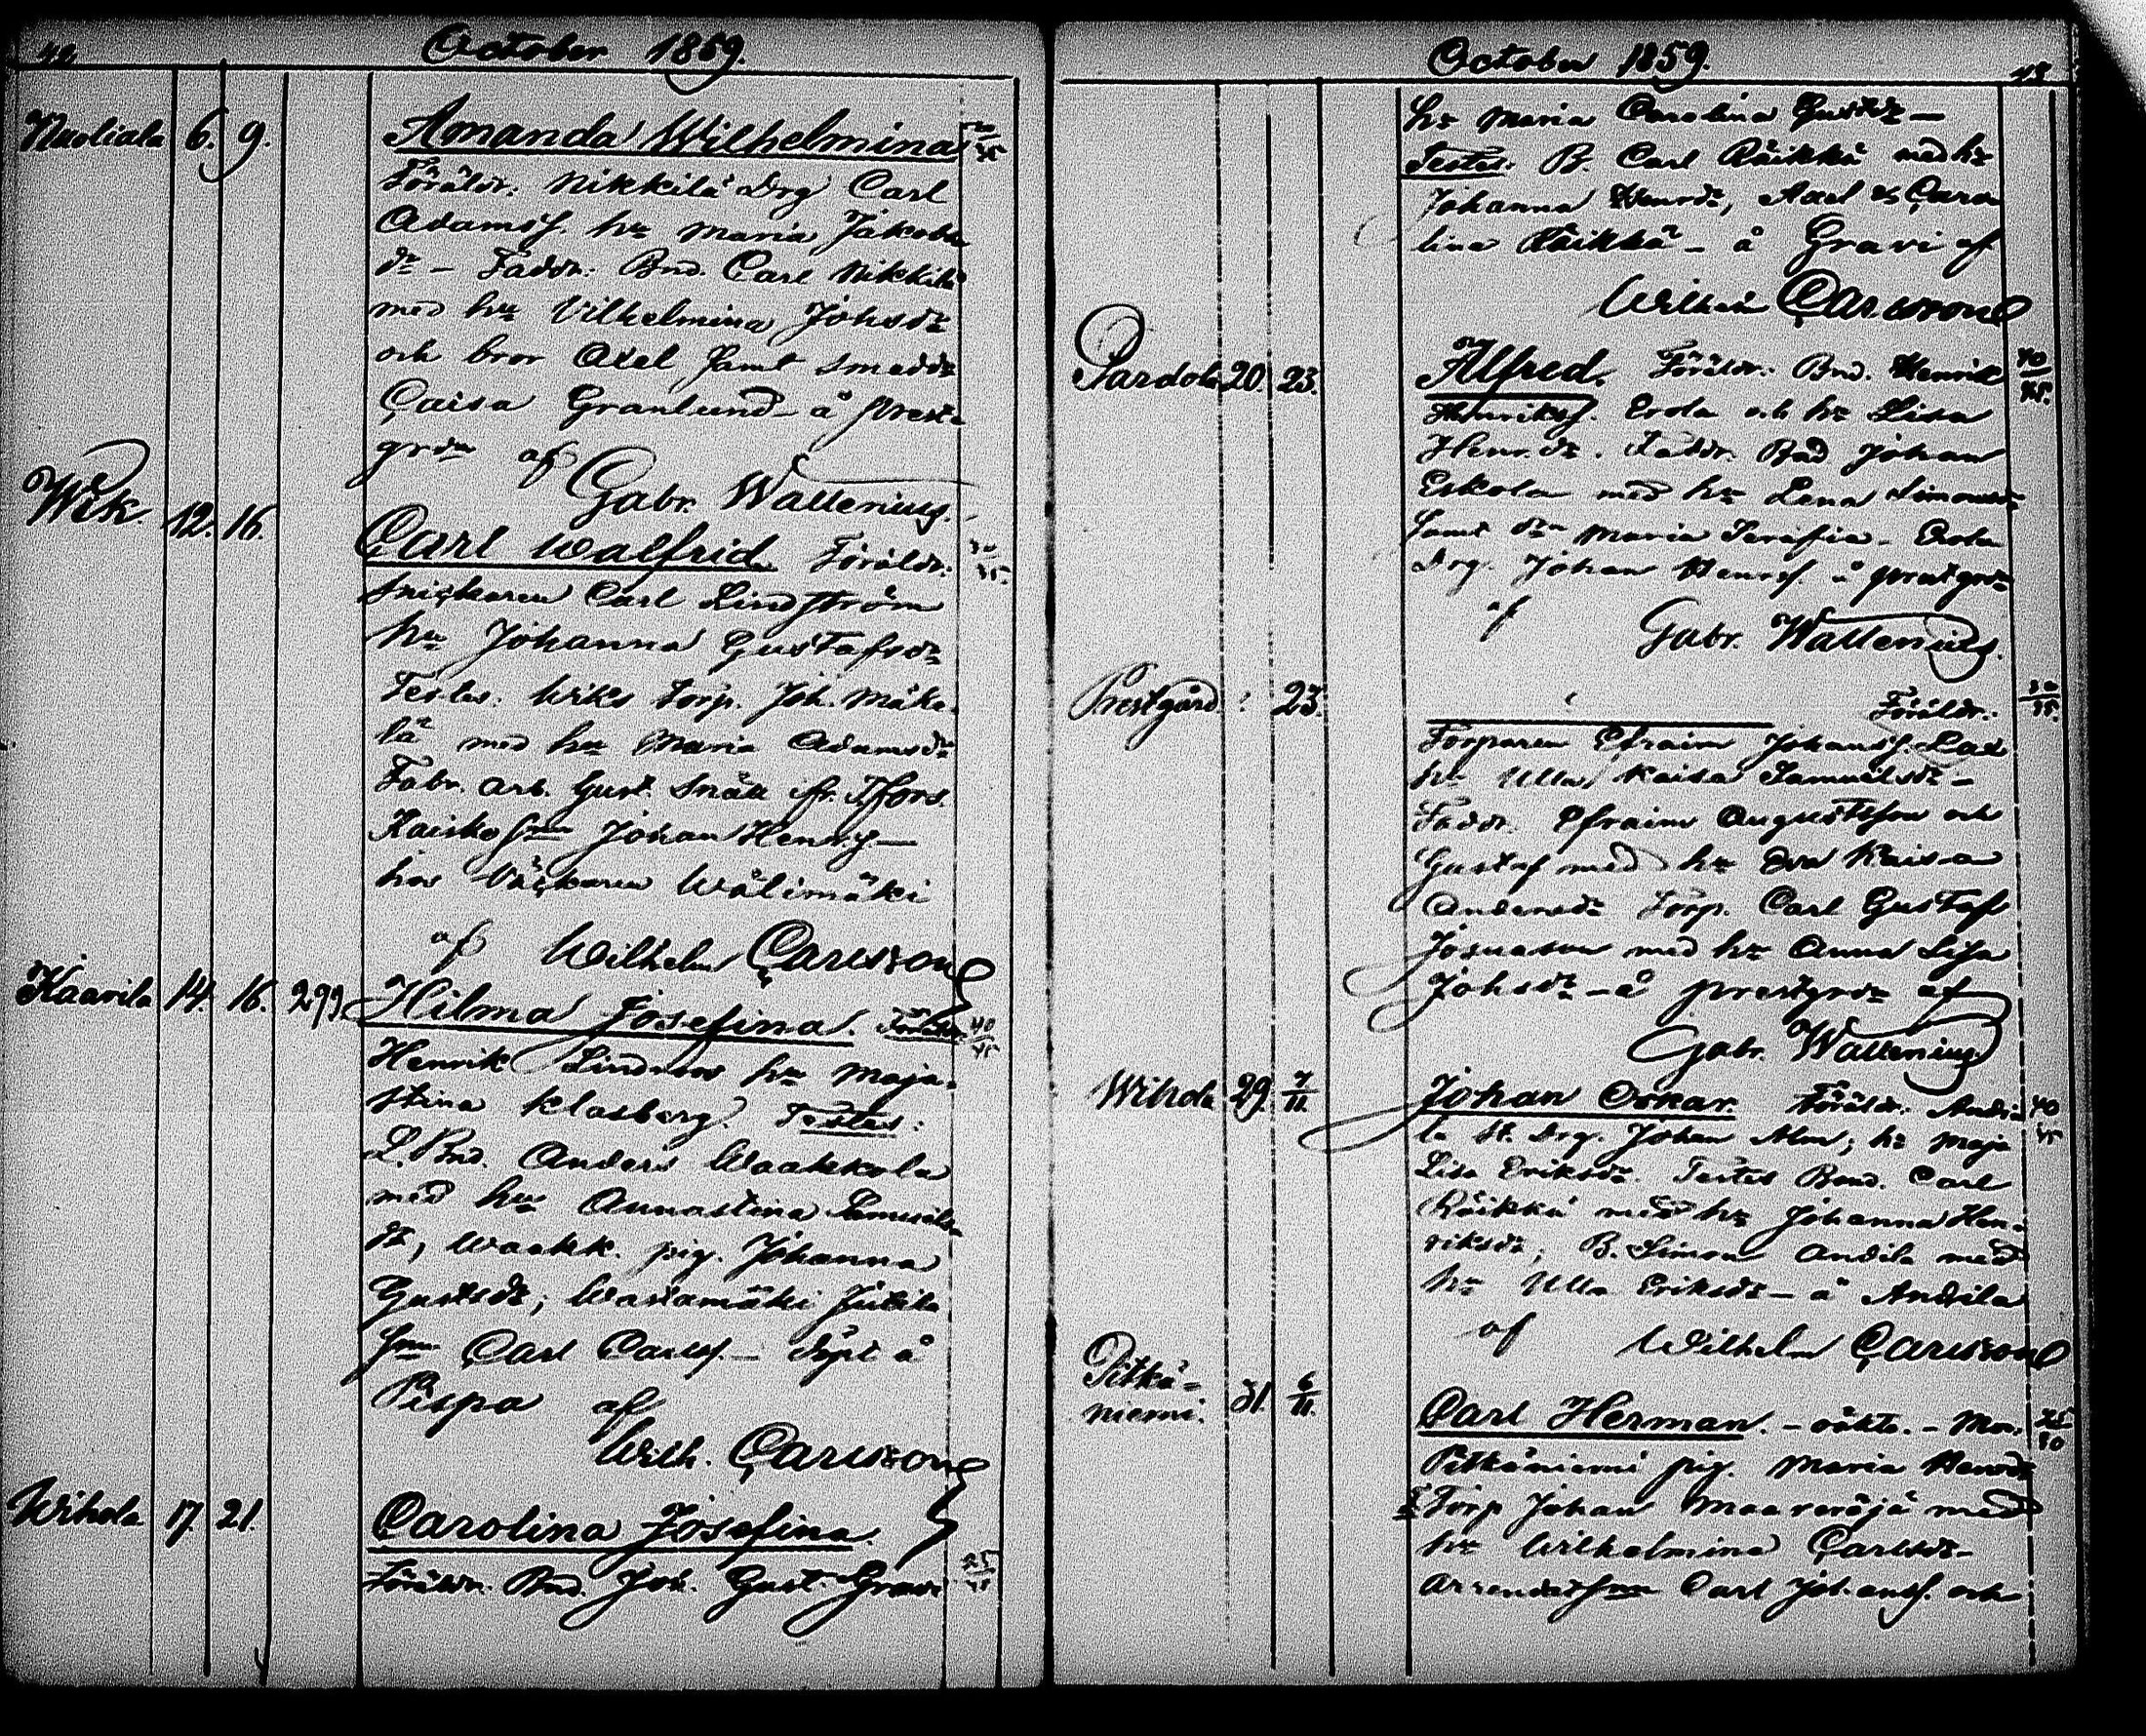 42
October 1859.
Nuoliala 6. 9. Amanda Wilhelmina
Föräldr. Nikkilä Drg Carl
Adamsf. hu Maria Jakobs
dr – Faddr. Bnd. Carl Nikkilä
med hu Vilhelmina Johsdr
och bror Axel samt smedds
Caisa Granlund – å prest-
grdn af Gabr. Wallenius.
Wik. 12. 16. Carl Walfrid Föräldr.
Snickaren Carl Lindström
hu Johanna Gustafsdr
Testes: Wiks torp. Joh. Mäke-
lä med hu Maria Adamsdr
Fabr. arb. Gust. Snäll ifr. Tfors.
Kaisko Johan Henrs –
hos Wälimäki
af Wilhelm Carlsson
Kaarila 14. 16. 299 Hilma Josefina. Föräldr. 40
Henrik Lindroos hu Maja-
stina Klasberg. Testes:
L. Bnd. Anders Waakkola
med hu Annastina Samuels
dr, Waakk. pig. Johanna
Gustsdr; Wastamäki Jutila
Carl Carlsf. – döpt å
Pispa af
Wilh. Carlsson
Wihola 17. 21. Carolina Josefina.
Föräldr. Bnd. Joh. Gust. Gravi
October 1859. 43
hu Maria Carolina Gustdr –
Testes: B. Carl Räikkä med hu
Johanna Henrdr, Axel & Caro
lina Räikkä – å Gravi af
Wilhelm Carlsson
Pardola 20. 23. Alfred. Föräldr. Bnd. Henrik 40
Henriksf. Erola och hu Lisa
Henr.dr. Faddr. Bnd Johan
Eskola med hu Lena Simonsdr
samt dr Maria Serafia – Erola
Drg. Johan Henrsf å prestgrdn
af Gabr. Wallenius.
Prestgård 23. Föräldr. 30
Torparen Efraim Johansf.
hu Ulla Kaisa Samuelsdr –
Faddr. Efraim Augustsson och
Gustaf med hu Eva Kaisa
Andersdr Torp. Carl Gustaf
Josuason med hu Anna Lisa
Johsdr – å prestgrdn af
Gabr. Wallenius
Wihola 29. 7/11. Johan Oskar. Föräldr. Andi- 40
la st. Drg. Johan Alm; hu Maja
Lisa Eriksdr. Testes Bond. Carl
Räikkä med hu Johanna Hen-
riksdr; B. Simon Andila med
hu Ulla Eriksdr – å Andila
af Wilhelm Carlsson
Pitkä- 31. 6/11. Carl Herman. – oäkta. – Mor:
niemi. Pitkäniemi pig. Maria Henrdr
Torp Johan Maaveräjä med
hu Wilhelmina Carlsdr –
Carl Johansf. och